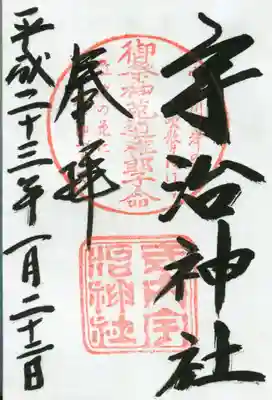 宇治神社
奉拝
御祭神菟道稚郎子命
宇治神社
平成二十三年一月二十二日